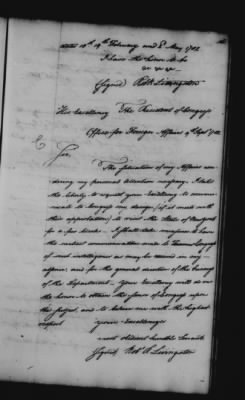 dated 18th 19th February and 8 May 1782
I have the honor to be
&c &c &c
(Signed) Robt R Livingston
His Excellency The President of Congress
Office for Foreign Affairs 9th Sept 1782
Sir,
The situation of my Affairs ren-
dering my personal attention necessary, I take
the liberty to request your Excellency to commu-
nicate to Congress my design (if it meets with
their approbation) to visit the State of New york
for a few weeks. I shall take measures to have
the earliest communication made to Congress
of such intelligence as may be received in my ab-
sence, and for the general direction of the business
of the Department. Your Excellency will do me
the honor to obtain the sense of Congress upon
this subject, and to believe me with the highest
respect your Excellency's
most obedient humble Servant
(Signed) Robt R Livingston